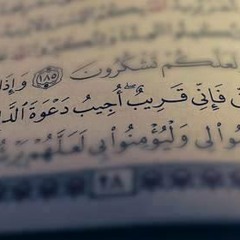 لعلكم تشكرون ١٨٥ وإذا
فَإِنِّي قَرِيبٌ ۖ أُجِيبُ دَعْوَةَ
وَلْيُؤْمِنُوا۟ بِي لَعَلَّهُمْ
٢٨